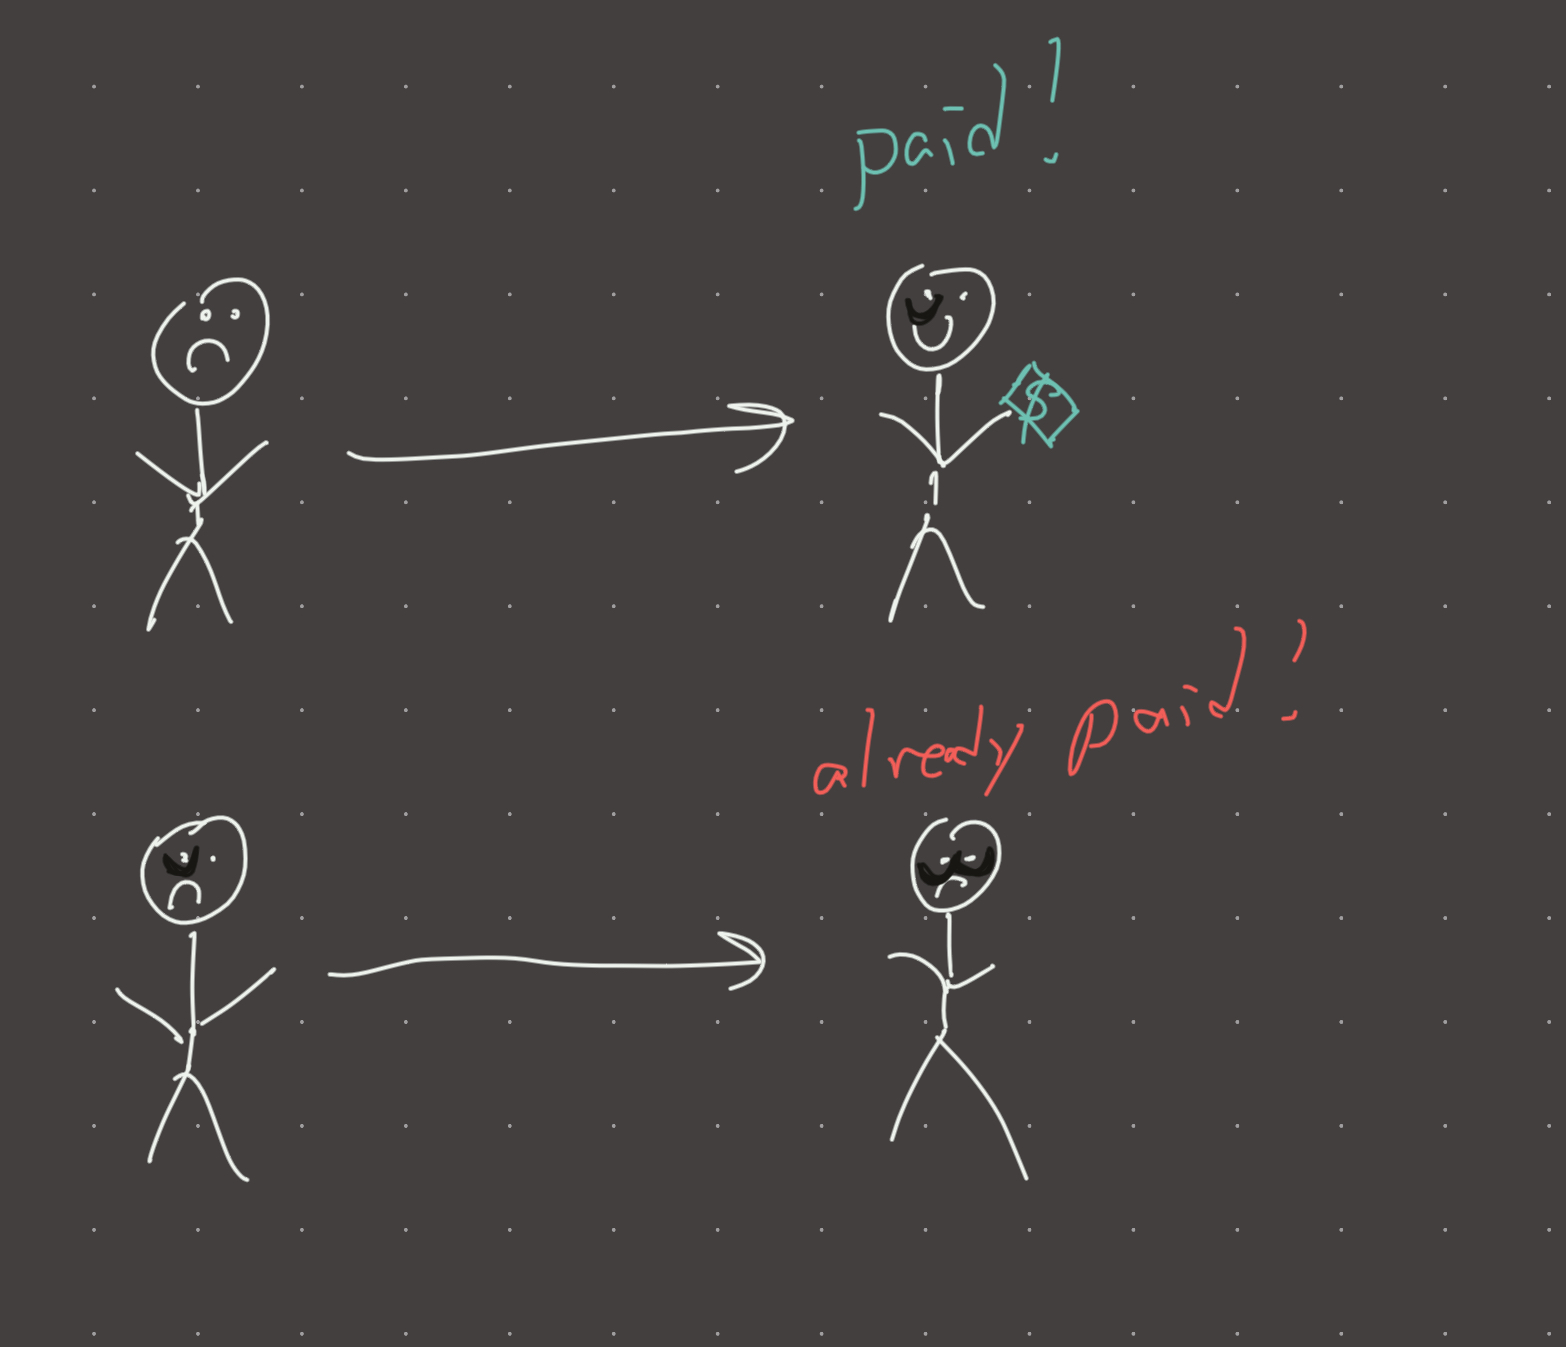 paid!
$
already paid!